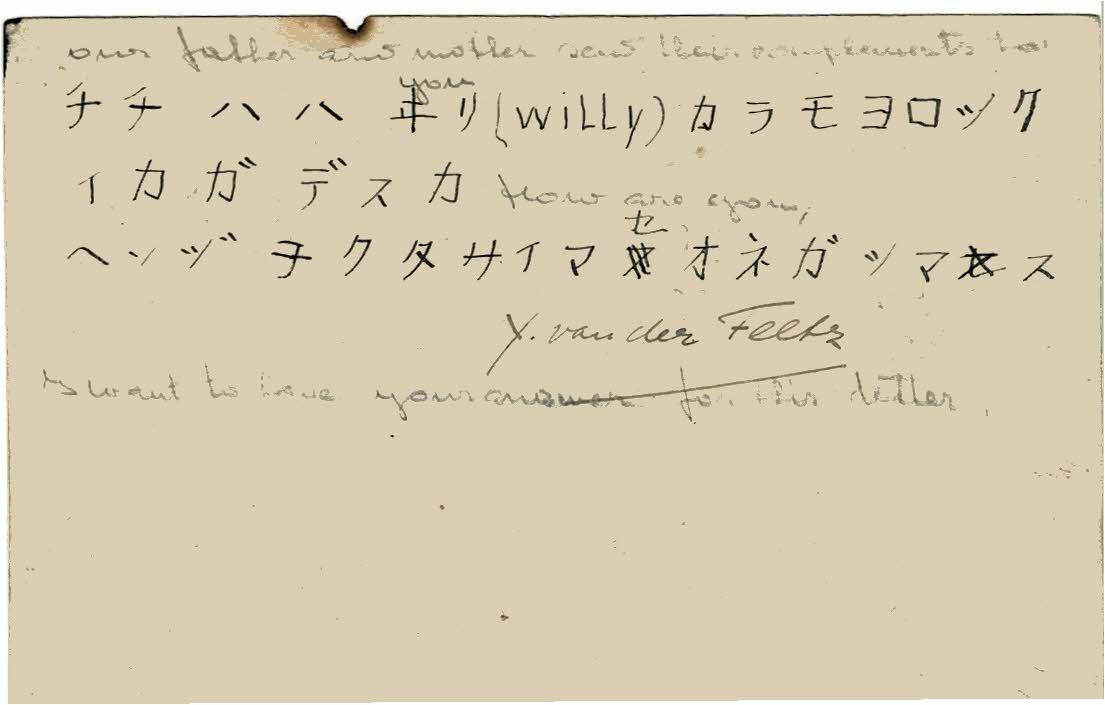 our father and mother send their complements to
you
チチ ハハ ヰリ(WiLLy)カラモヨロック
ィカガ デスカ How are you,
セ
ヘンヅ ヲクタサイマ オネガッマス
Y. van der Feltz
I want to have your answer for this letter.